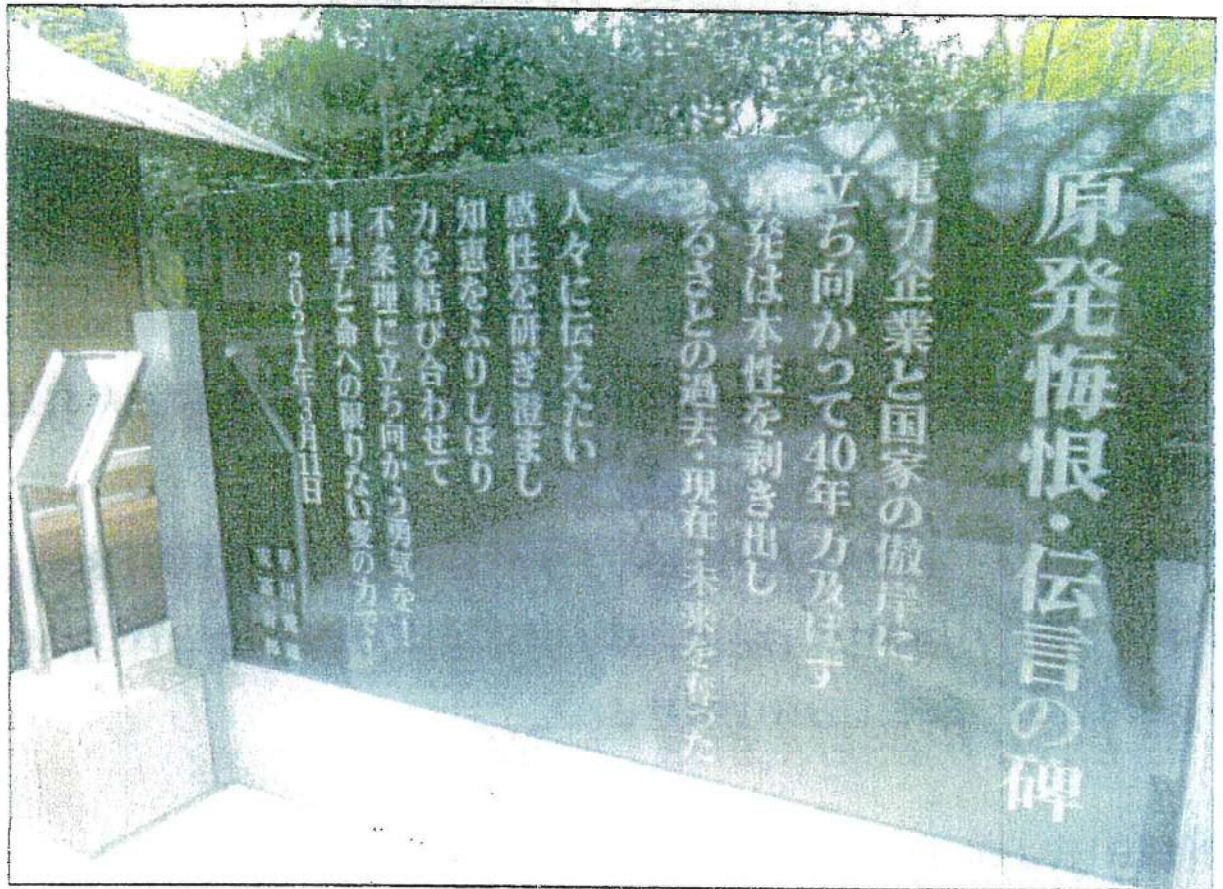 原発悔恨・伝言の碑
電力企業と国家の傲岸に
立ち向かって40年力及ばず
原発は本性を剥き出し
ふるさとの過去・現在・未来を奪った
人々に伝えたい
感性を研ぎ澄まし
知恵をふりしぼり
力を結び合わせて
不条理に立ち向かう勇気を!
科学と命への限りない愛の力で!
2021年3月11日